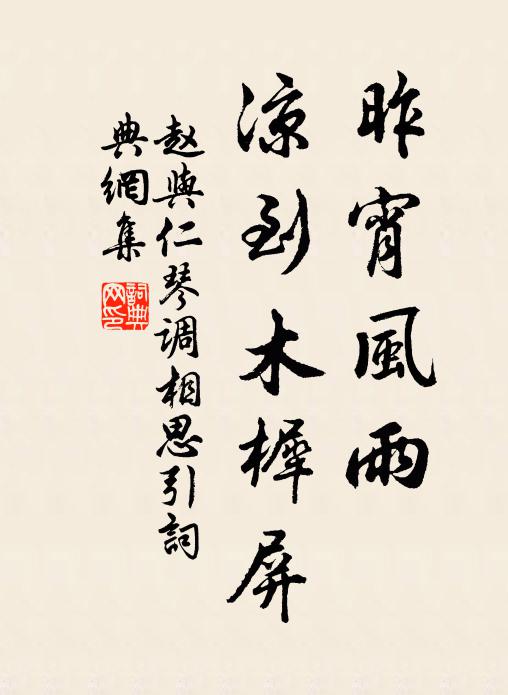 昨宵風雨
凉到木樨屏
赵與仁琴调相思引詞
典網集
詞典网印